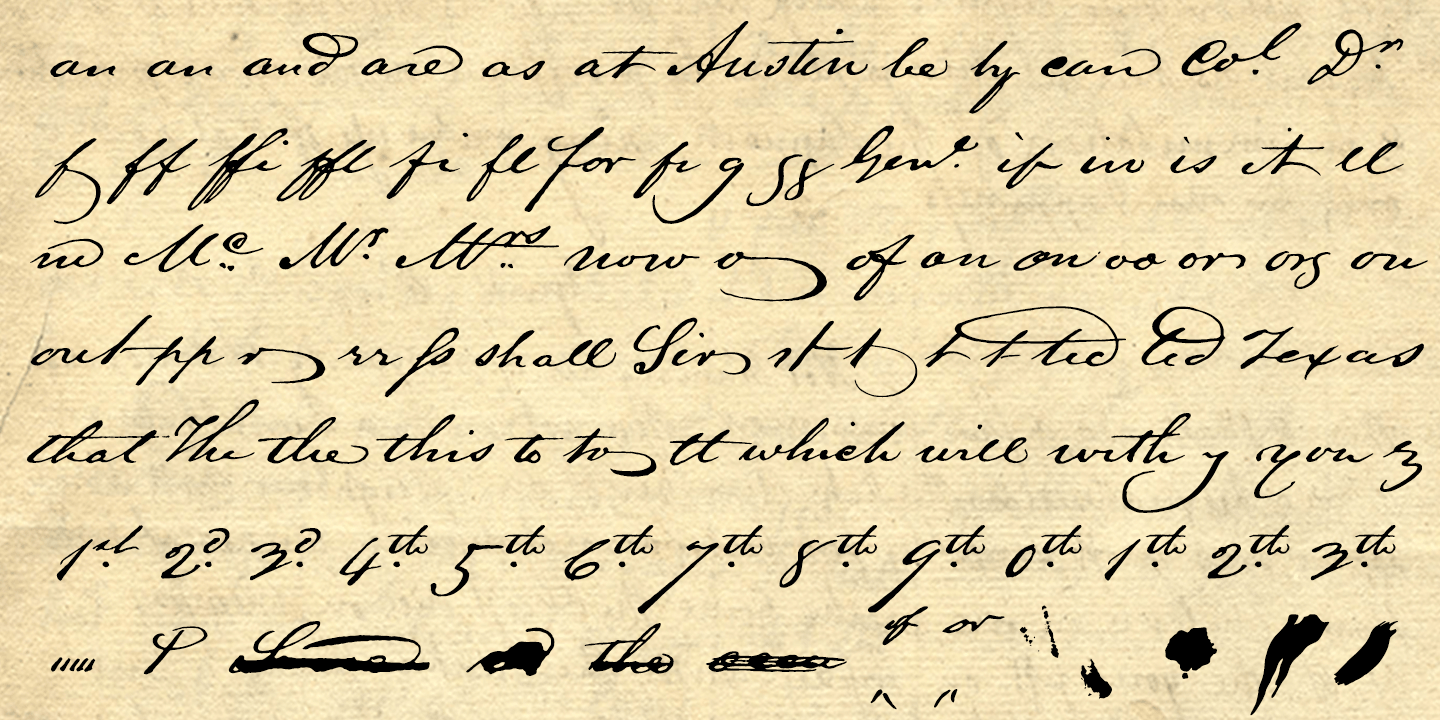 an an and are as at Austin be by can Col. Dr.
f ff ffi ffl fi fl for fr g gg Genl. if in is it ll
m Mc. Mr. Mrs. now o of on on oo or org ou
out pp r rr ss shall Sir st t t t ted ted Texas
that The the this to to tt which will with y you z
1st. 2d. 3d. 4th. 5th. 6th. 7th. 8th. 9th. 0th. 1th. 2th. 3th.
P the of or